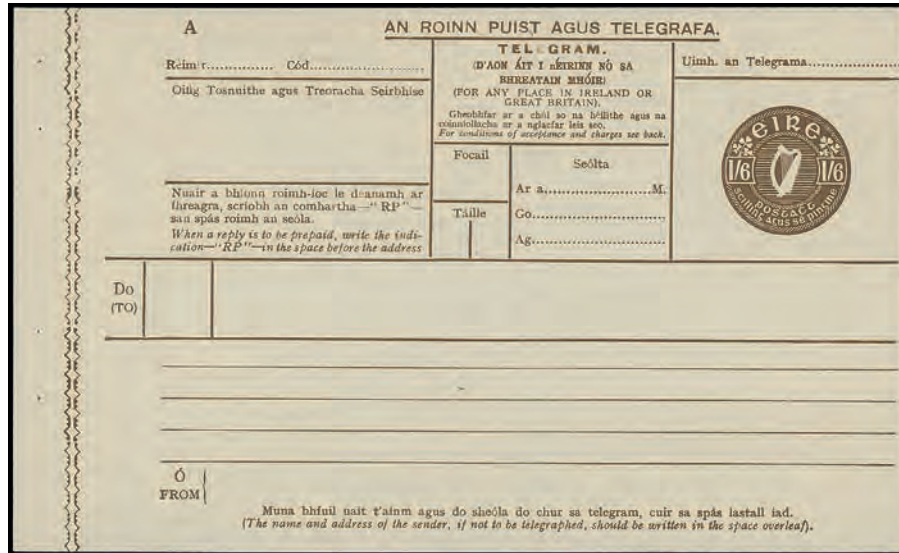 A
AN ROINN PUIST AGUS TELEGRAFA.
Réim r.............. Cód........................
Oifig Tosnuithe agus Treoracha Seirbhíse
Nuair a bhíonn roimh-íoc le d anamh ar
fhreagra, scríobh an comhartha—"RP"—
san spás roimh an seóla.
When a reply is to be prepaid, write the indi-
cation—"RP"—in the space before the address
TEL GRAM.
(D'AON ÁIT I nÉIRINN NÓ SA
BHREATAIN MHÓIR)
(FOR ANY PLACE IN IRELAND OR
GREAT BRITAIN).
Gheobhfar ar a chúl so na héilithe agus na
coinníollacha ar a nglacfar leis seo.
For conditions of acceptance and charges see back.
Focail
Táille
Seólta
Ar a........................M.
Go...........................
Ag...........................
Uimh. an Telegrama....................
EIRE
1/6 1/6
POSTAGE
scilling agus sé pingine
Do
(TO)
Ó
FROM
Muna bhfuil uait t'ainm agus do sheóla do chur sa telegram, cuir sa spás lastall iad.
(The name and address of the sender, if not to be telegraphed, should be written in the space overleaf).